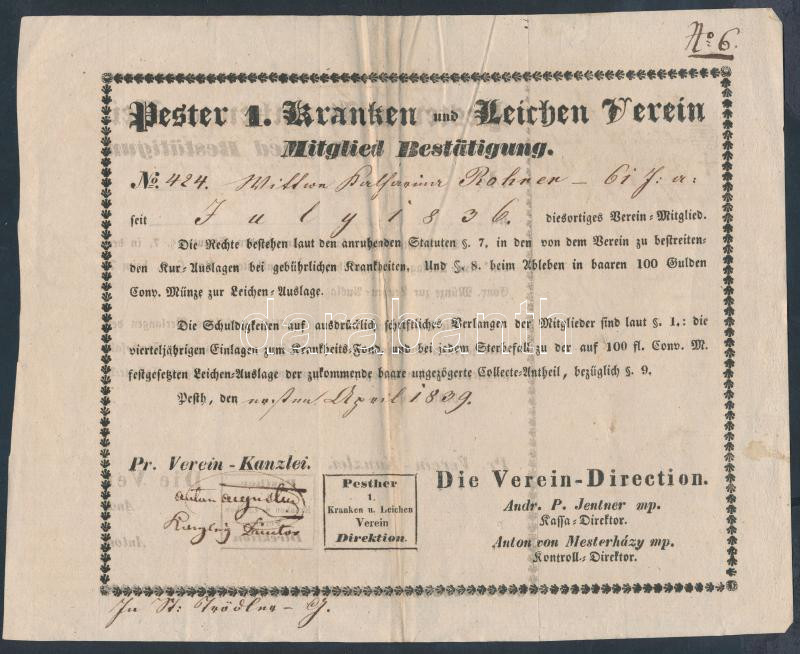 No. 6.
Pester 1. Kranken und Leichen Verein
Mitglied Bestätigung.
No. 424. Wittwe Katharina Rohrer – 61 J: a:
seit July 1836. diesortiges Verein-Mitglied.
Die Rechte bestehen laut den anruhenden Statuten §. 7, in den von dem Verein zu bestreiten-
den Kur-Auslagen bei gebührlichen Krankheiten, Und §. 8. beim Ableben in baaren 100 Gulden
Conv. Münze zur Leichen-Auslage.
Die Schuldigkeiten auf ausdrücklich schriftliches Verlangen der Mitglieder sind laut §. 1.: die
vierteljährigen Einlagen zum Krankheits-Fond, und bei jedem Sterbefall zu der auf 100 fl. Conv. M.
festgesetzten Leichen-Auslage der zukommende baare ungezögerte Collecte-Antheil, bezüglich §. 9.
Pesth, den ersten April 1839.
Pr. Verein-Kanzlei.
Anton Augustin
Pesther
1.
Kranken u. Leichen
Verein
Direktion.
Die Verein-Direction.
Andr. P. Jentner mp.
Kassa-Direktor.
Anton von Mesterházy mp.
Kontroll-Direktor.
In St: Trödler – J.
darabanth